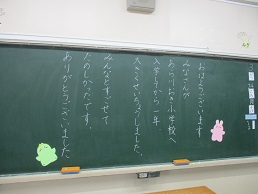 おはようございます
みなさんが
あらいおき小学校へ
入学してから一年
大きくせいちょうしました。
みんなとすごせて
たのしかったです。
ありがとうございました。